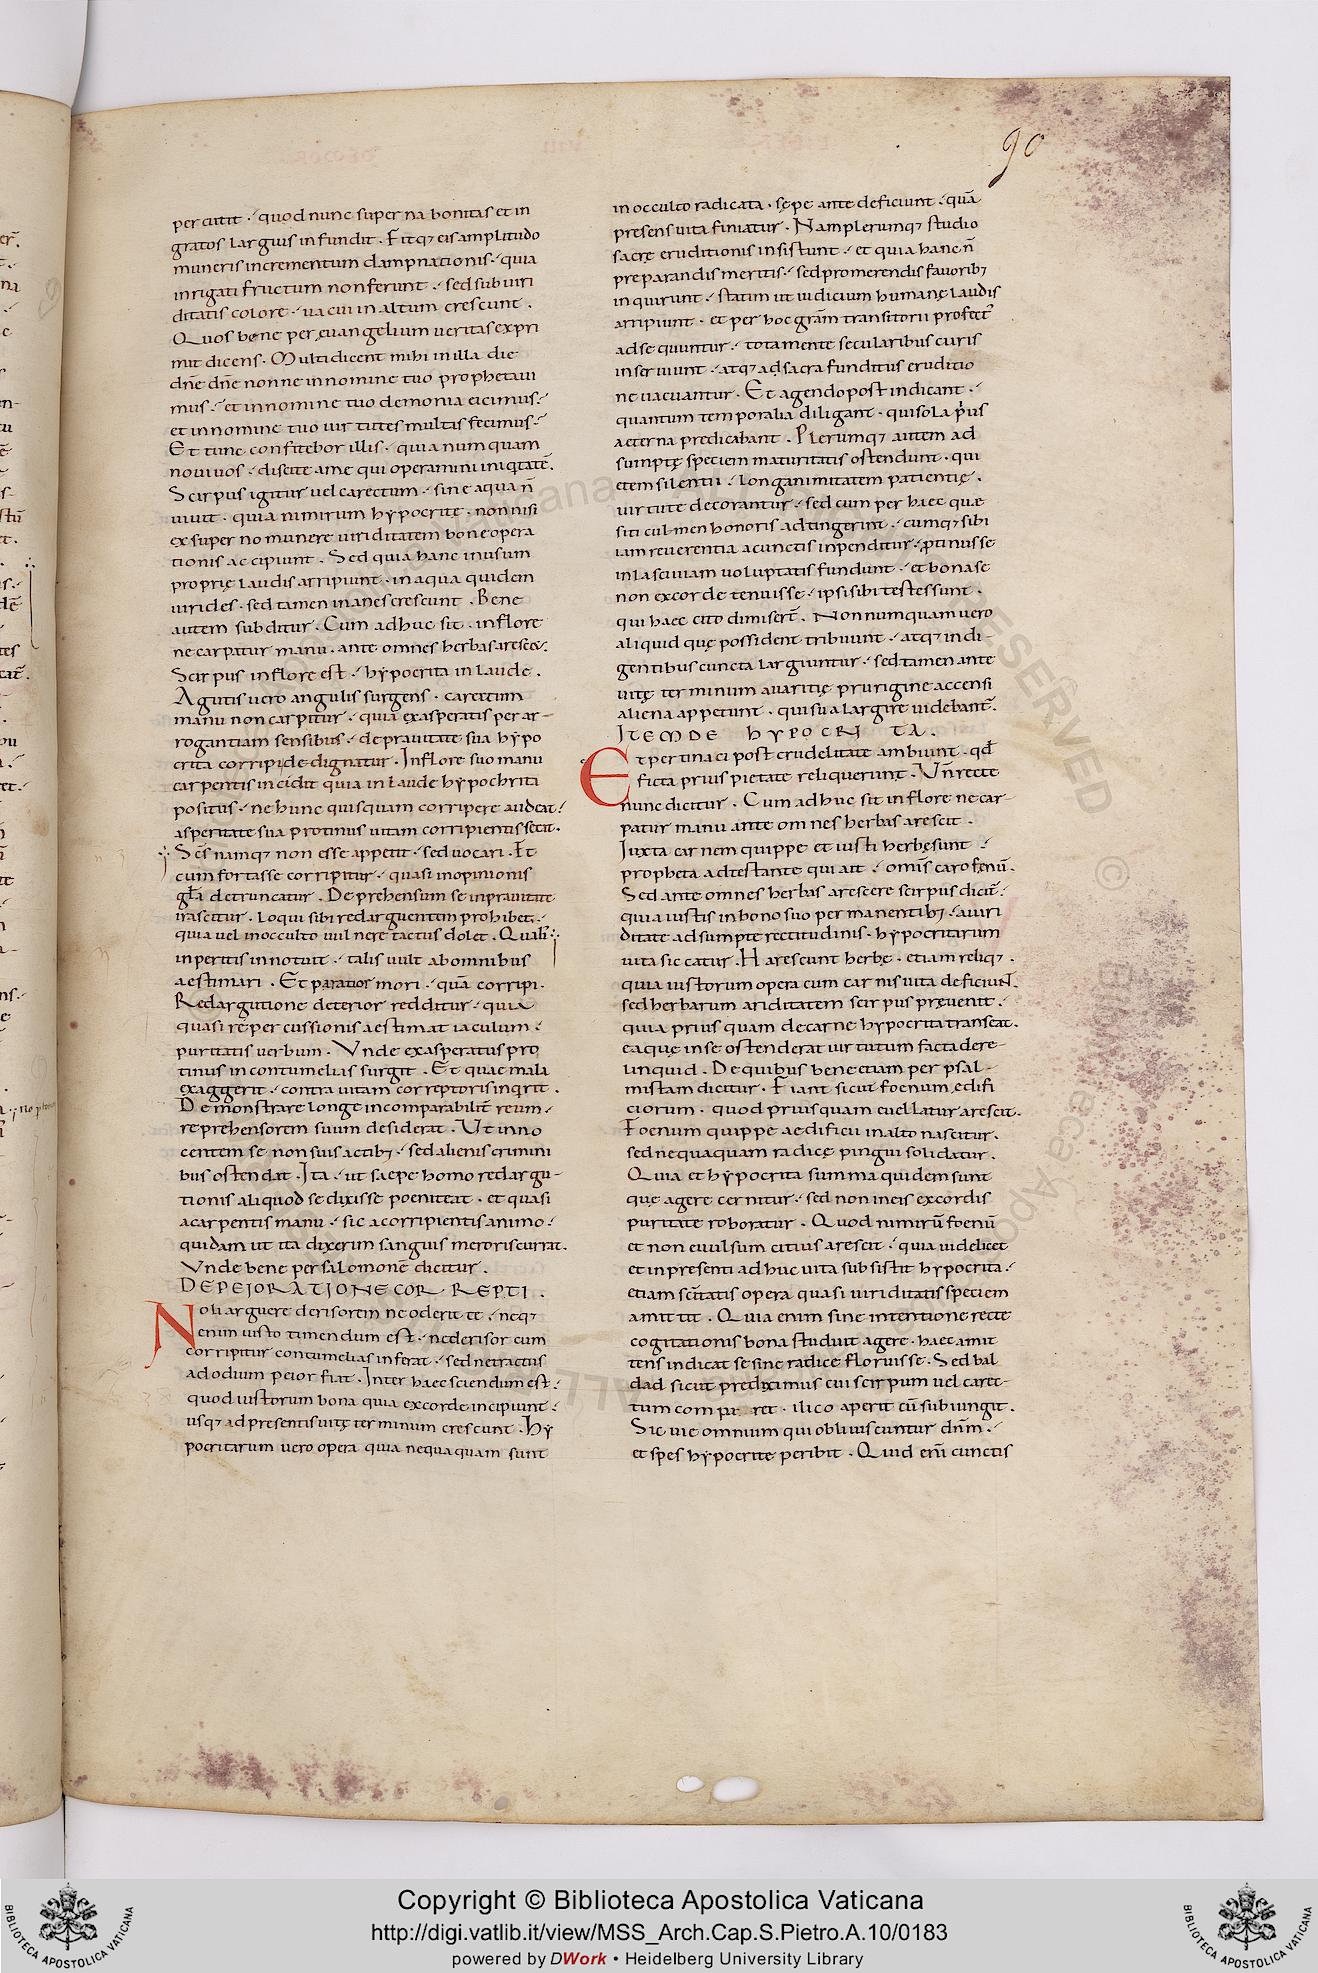 90
percutit · quod nunc superna bonitas et in
gratos largius infundit · Fitq; eis amplitudo
muneris incrementum dampnationis · quia
inrigati fructum non ferunt · sed sub uiri
ditatis colore · uacui in altum crescunt ·
Quos bene per euangelium ueritas expri
mit dicens · Multi dicent mihi in illa die
dñe dñe nonne in nomine tuo prophetaui
mus · et in nomine tuo demonia eicimus ·
et in nomine tuo uirtutes multas fecimus ·
Et tunc confitebor illis · quia numquam
noui uos · discite a me qui operamini iniqtatē.
Scirpus igitur uel carectum · sine aqua ñ
uiuit · quia nimirum hypocrite · non nisi
ex superno munere uiriditatem bone opera
tionis accipiunt · Sed quia hanc in usum
proprię laudis arripiunt · in aqua quidem
uirides · sed tamen inanes crescunt · Bene
autem subditur · Cum adhuc sit · in flore
ne carpatur manu · ante omnes herbas arescē ·
Scirpus in flore est · hypocrita in laude ·
Agutis uero angulis surgens · carectum
manu non carpitur · quia exasperatis per ar-
rogantiam sensibus · de prauitate sua hypo
crita corripi dedignatur · In flore suo manu
carpentis incidit quia in laude hypochrita
positus · ne hunc quisquam corripere audeat ·
asperitate sua protinus uitam corripientis secat ·
Scs namq; non esse appetit · sed uocari · Et
cum fortasse corripitur · quasi in opinionis
gla detruncatur · Deprehensum se in prauitate
irascitur · Loqui sibi redarguentem prohibet ·
quia uel in occulto uulnere tactus dolet · Qualis
inperitis innotuit · talis uult ab omnibus
aestimari · Et paratior mori · quā corripi ·
Redargutione deterior redditur · quia
quasi repercussionis aestimat iaculum ·
puritatis uerbum · Vnde exasperatus pro
tinus in contumelias surgit · Et quae mala
exaggerit · contra uitam correptoris inqrit ·
Demonstrare longe incomparabilit reum ·
reprehensorem suum desiderat · Ut inno
centem se non suis actib; · sed alienis crimini
bus ostendat · Ita · ut saepe homo redargu-
tionis aliquod se dixisse poeniteat · et quasi
a carpentis manu · sic a corripientis animo ·
quidam ut ita dixerim sanguis meroris currat.
Vnde bene per salomonē dicitur ·
DE PEJORATJONE CORREPTI ·
Noli arguere derisorem ne oderit te · neq;
enim iusto timendum est · ne derisor cum
corripitur contumelias inferat · sed ne tractus
ad odium peior fiat · Inter haec sciendum est ·
quod iustorum bona quia ex corde incipiunt ·
usq; ad presentis uitę terminum crescunt · Hy
pocritarum uero opera quia nequaquam sunt
in occulto radicata · sępe ante deficiunt · quā
presens uita finiatur · Nam plerumq; studio
sacrę eruditionis insistunt · et quia hanc ñ
preparandis meritis · sed promerendis fauorib;
inquirunt · statim ut iudicium humanę laudis
arripiunt · et per hoc gram transitorii profect
adsequuntur · tota mente secularibus curis
inseruiunt · atq; ad sacra funditus eruditio
ne uacuantur · Et agendo post indicant ·
quantum temporalia diligant · qui sola prius
aeterna predicabant · Plerumq; autem ad
sumptę speciem maturitatis ostendunt · qui
etem silentii · longanimitatem patientię ·
uirtute decorantur · sed cum per haec quae
siti culmen honoris adtingerint · cumq; sibi
iam reuerentia a cunctis inpenditur · protinus se
in lasciuiam uoluptatis fundunt · et bona se
non ex corde tenuisse · ipsi sibi testes sunt ·
qui haec cito dimiserī · Non numquam uero
aliquid quę possident tribuunt · atq; indi-
gentibus cuncta largiuntur · sed tamen ante
uitę terminum auaritię prurigine accensi
aliena appetunt · qui sua largire uidebant.
JTEM DE HYPOCRJTA.
Et pertinaci post crudelitate ambiunt · qd
ficta prius pietate reliquerunt · Uñ recte
nunc dicitur · Cum adhuc sit in flore ne car-
patur manu ante omnes herbas arescit ·
Iuxta carnem quippe et iusti herbę sunt ·
propheta adtestante qui ait · omis caro fenū ·
Sed ante omnes herbas arescere scirpus dicit ·
quia iustis in bono suo permanentib; · a uiri
ditate adsumpte rectitudinis · hypocritarum
uita siccatur · Harescunt herbę · etiam reliq; ·
quia iustorum opera cum carnis uita deficiunt.
sed herbarum ariditatem scirpus pręuenit ·
quia prius quam de carne hypocrita transeat.
ea quę in se ostenderat uirtutum facta dere-
linquid · De quibus bene etiam per psal-
mistam dicitur · Fiant sicut foenum ędifi
ciorum · quod priusquam euellatur arescit.
Foenum quippe aedificii in alto nascitur.
sed nequaquam radicę pingui solidatur.
Quia et hypocrita summa quidem sunt
quę agere cernitur · sed non in eis ex cordis
puritate roboratur · Quod nimirū foenū
et non euulsum citius arescit · quia uidelicet
et in presenti adhuc uita subsistit hypocrita ·
etiam sctitatis opera quasi uiriditatis speciem
amittit · Quia enim sine intentione recte
cogitationis bona studuit agere · haec amit
tens indicat se sine radice floruisse · Sed bal
dad sicut predximus cui scirpum uel carec-
tum comparet · ilico aperit cū subiungit.
Sic uie omnium qui obliuiscuntur dñm ·
et spes hypocrite peribit · Quid eni cunctis
Copyright © Biblioteca Apostolica Vaticana
http://digi.vatlib.it/view/MSS_Arch.Cap.S.Pietro.A.10/0183
powered by DWork • Heidelberg University Library
BIBLIOTECA APOSTOLICA VATICANA
BIBLIOTECA APOSTOLICA VATICANA